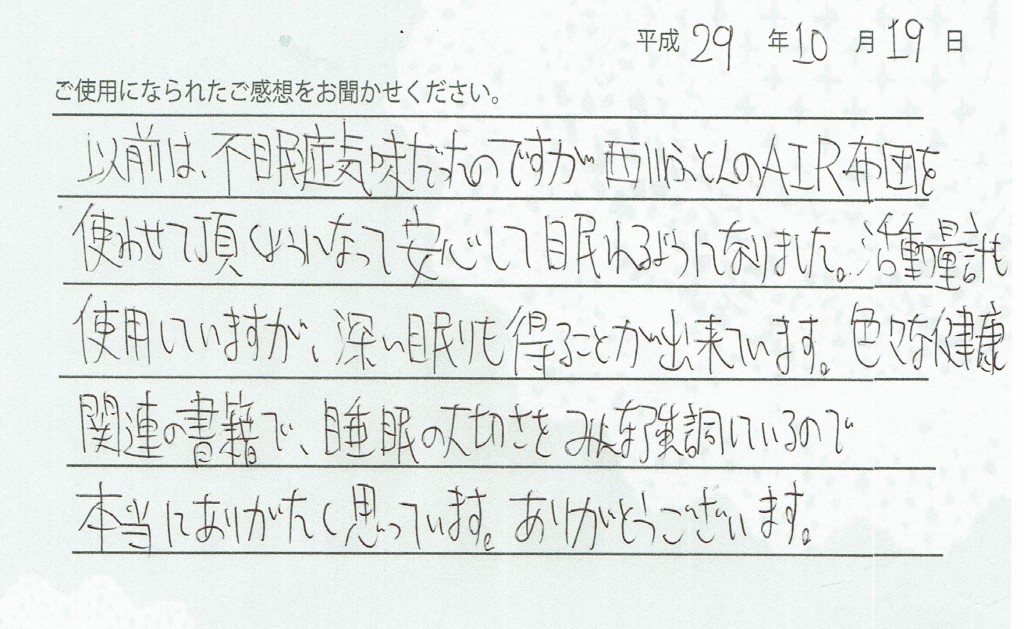 平成 29 年 10 月 19 日
ご使用になられたご感想をお聞かせください。
以前は、不眠症気味だったのですが西川ふとんのAIR布団を
使わせて頂くようになって安心して眠れるようになりました。活動量計も
使用していますが、深い眠りも得ることが出来ています。色々な健康
関連の書籍で、睡眠の大切さをみんな強調しているので
本当にありがたく思っています。ありがとうございます。